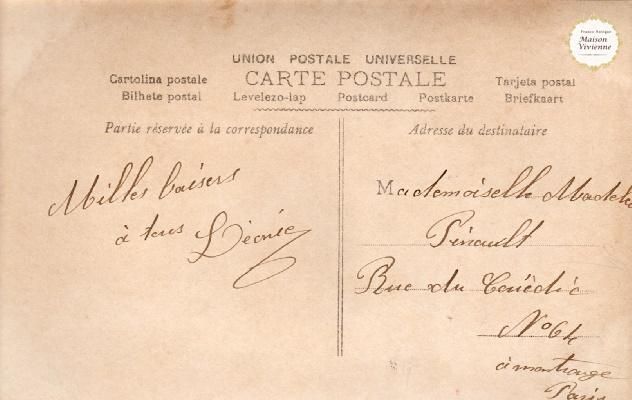 France Antique
Maison
Vivienne
UNION POSTALE UNIVERSELLE
CARTE POSTALE
Cartolina postale
Tarjeta postal
Bilhete postal
Levelezo-lap
Postcard
Postkarte
Briefkaart
Partie réservée à la correspondance
Milles baisers
à tous Léonie
Adresse du destinataire
Mademoiselle Madele
Pinault
Rue du Couëdic
No 64
à montrouge
Paris